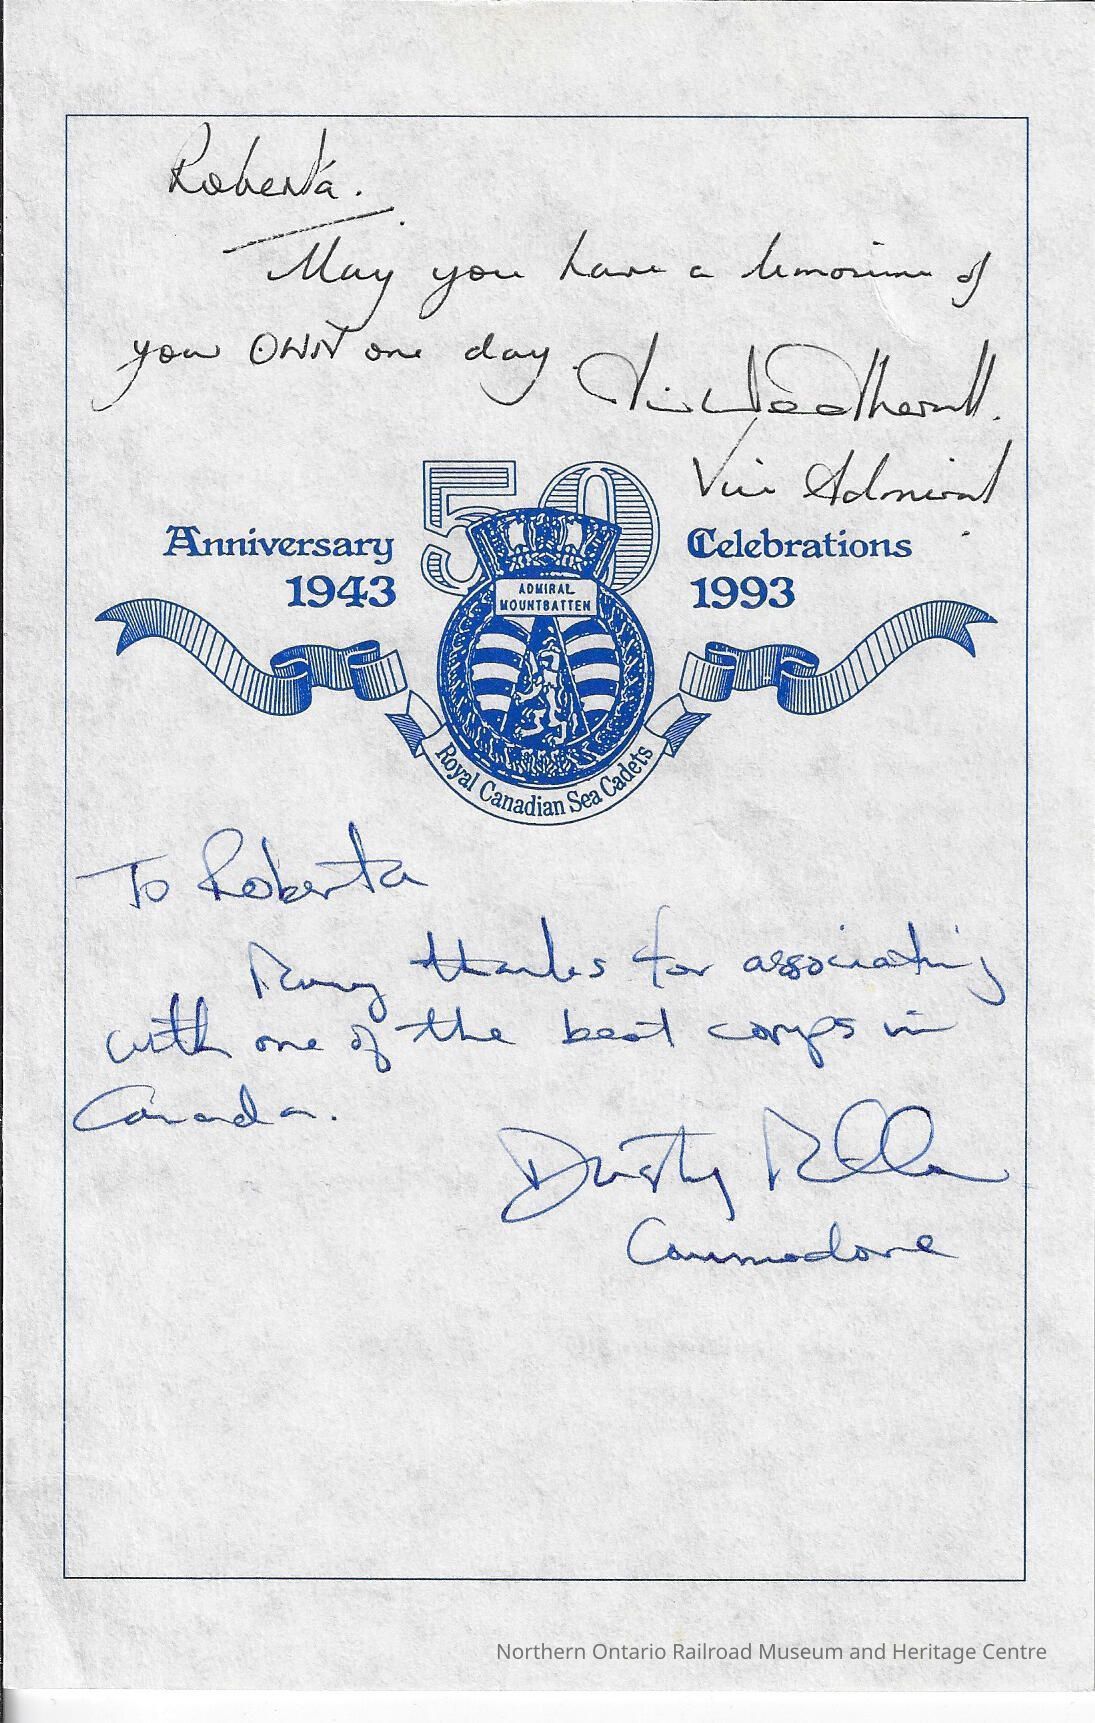 Roberta.
May you have a limousine of
your OWN one day.
Vice Admiral
50
Anniversary Celebrations
1943 1993
ADMIRAL
MOUNTBATTEN
Royal Canadian Sea Cadets
To Roberta
Many thanks for associating
with one of the best corps in
Canada.
Dusty
Commodore
Northern Ontario Railroad Museum and Heritage Centre